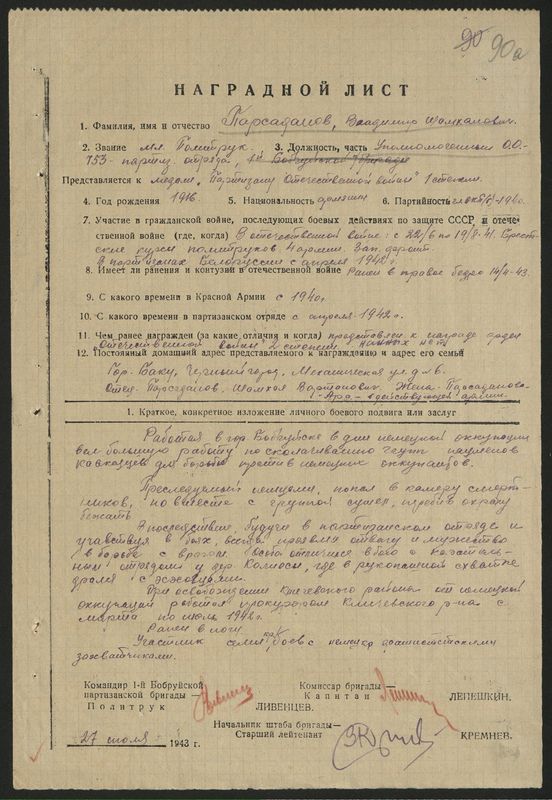 90 90а
НАГРАДНОЙ ЛИСТ
1. Фамилия, имя и отчество Парсаданов, Владимир Шамхалович.
2. Звание мл. Политрук. 3. Должность, часть Уполномоченный О.О.
753-партиз. отряда. 1й Бобруйской бригады
Представляется к медали "Партизану Отечественной войны" 1 степени.
4. Год рождения 1916. 5. Национальность армянин 6. Партийность
7. Участие в гражданской войне, последующих боевых действиях по защите СССР и отече-
ственной войне (где, когда) В отечественной войне: с 22/6 по 19/8-41.
курсы политруков 4 армии. Зап. фронт.
В партизанах Белоруссии с апреля 1942 г.
8. Имеет ли ранения и контузии в отечественной войне Ранен в правое бедро 14/4-43.
9. С какого времени в Красной Армии с 1940г.
10. С какого времени в партизанском отряде с апреля 1942 г.
11. Чем ранее награжден (за какие отличия и когда) представлен к награде орден
Отечественной войны 2 степени
12. Постоянный домашний адрес представляемого к награждению и адрес его семьи
Гор. Баку, Черный город, Механическая ул. д
Отец. Парсаданов, Шамхал Вартанович. Жена-Парсаданова
- в действующей армии.
1. Краткое, конкретное изложение личного боевого подвига или заслуг
Работая в гор. Бобруйске в дни немецкой оккупации
вел большую работу по сколачиванию групп
кавказцев для борьбы против немецких оккупантов.
Преследуемый немцами, попал в камеру смерт-
ников, но вместе с группой сумел, перебив охрану
бежать.
Впоследствие, будучи в партизанском отряде и
участвуя в боях, всегда проявлял отвагу и мужество
в борьбе с врагом. Особо отличился в бою с
отрядом у дер. где в рукопашной схватке
дрался с
При освобождении Кличевского района от немецкой
оккупации работал прокурором Кличевского р-на с
марта по июль 1942 г.
Ранен в ногу.
Участник боев с немецко фашистскими
захватчиками.
Командир 1-й Бобруйской
партизанской бригады —
Политрук ЛИВЕНЦЕВ.
Комиссар бригады—
Капитан ЛЕПЕШКИН.
Начальник штаба бригады—
Старший лейтенант КРЕМНЕВ.
27 июля 1943 г.